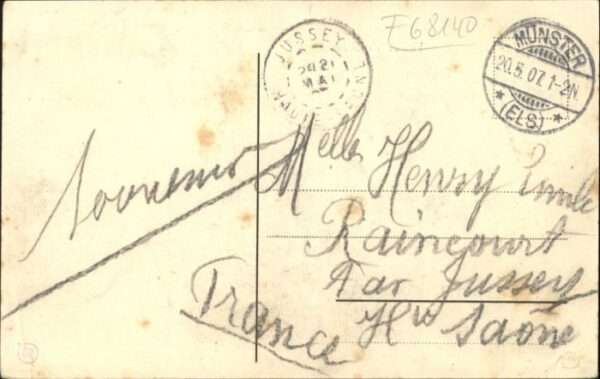 F68140
JUSSEY
21
MAI
HTE SAONE
MÜNSTER
20.5.07. 1-2N.
* (ELS) *
Souvenir
Melle Henry Emile
Raincourt
Par Jussey
Hte Saône
France